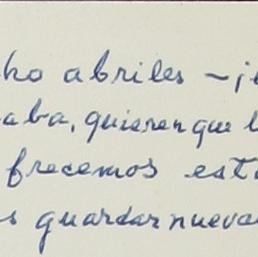 ho abriles – ¡
aba, quieren que l
frecemos est
s guardar nueva